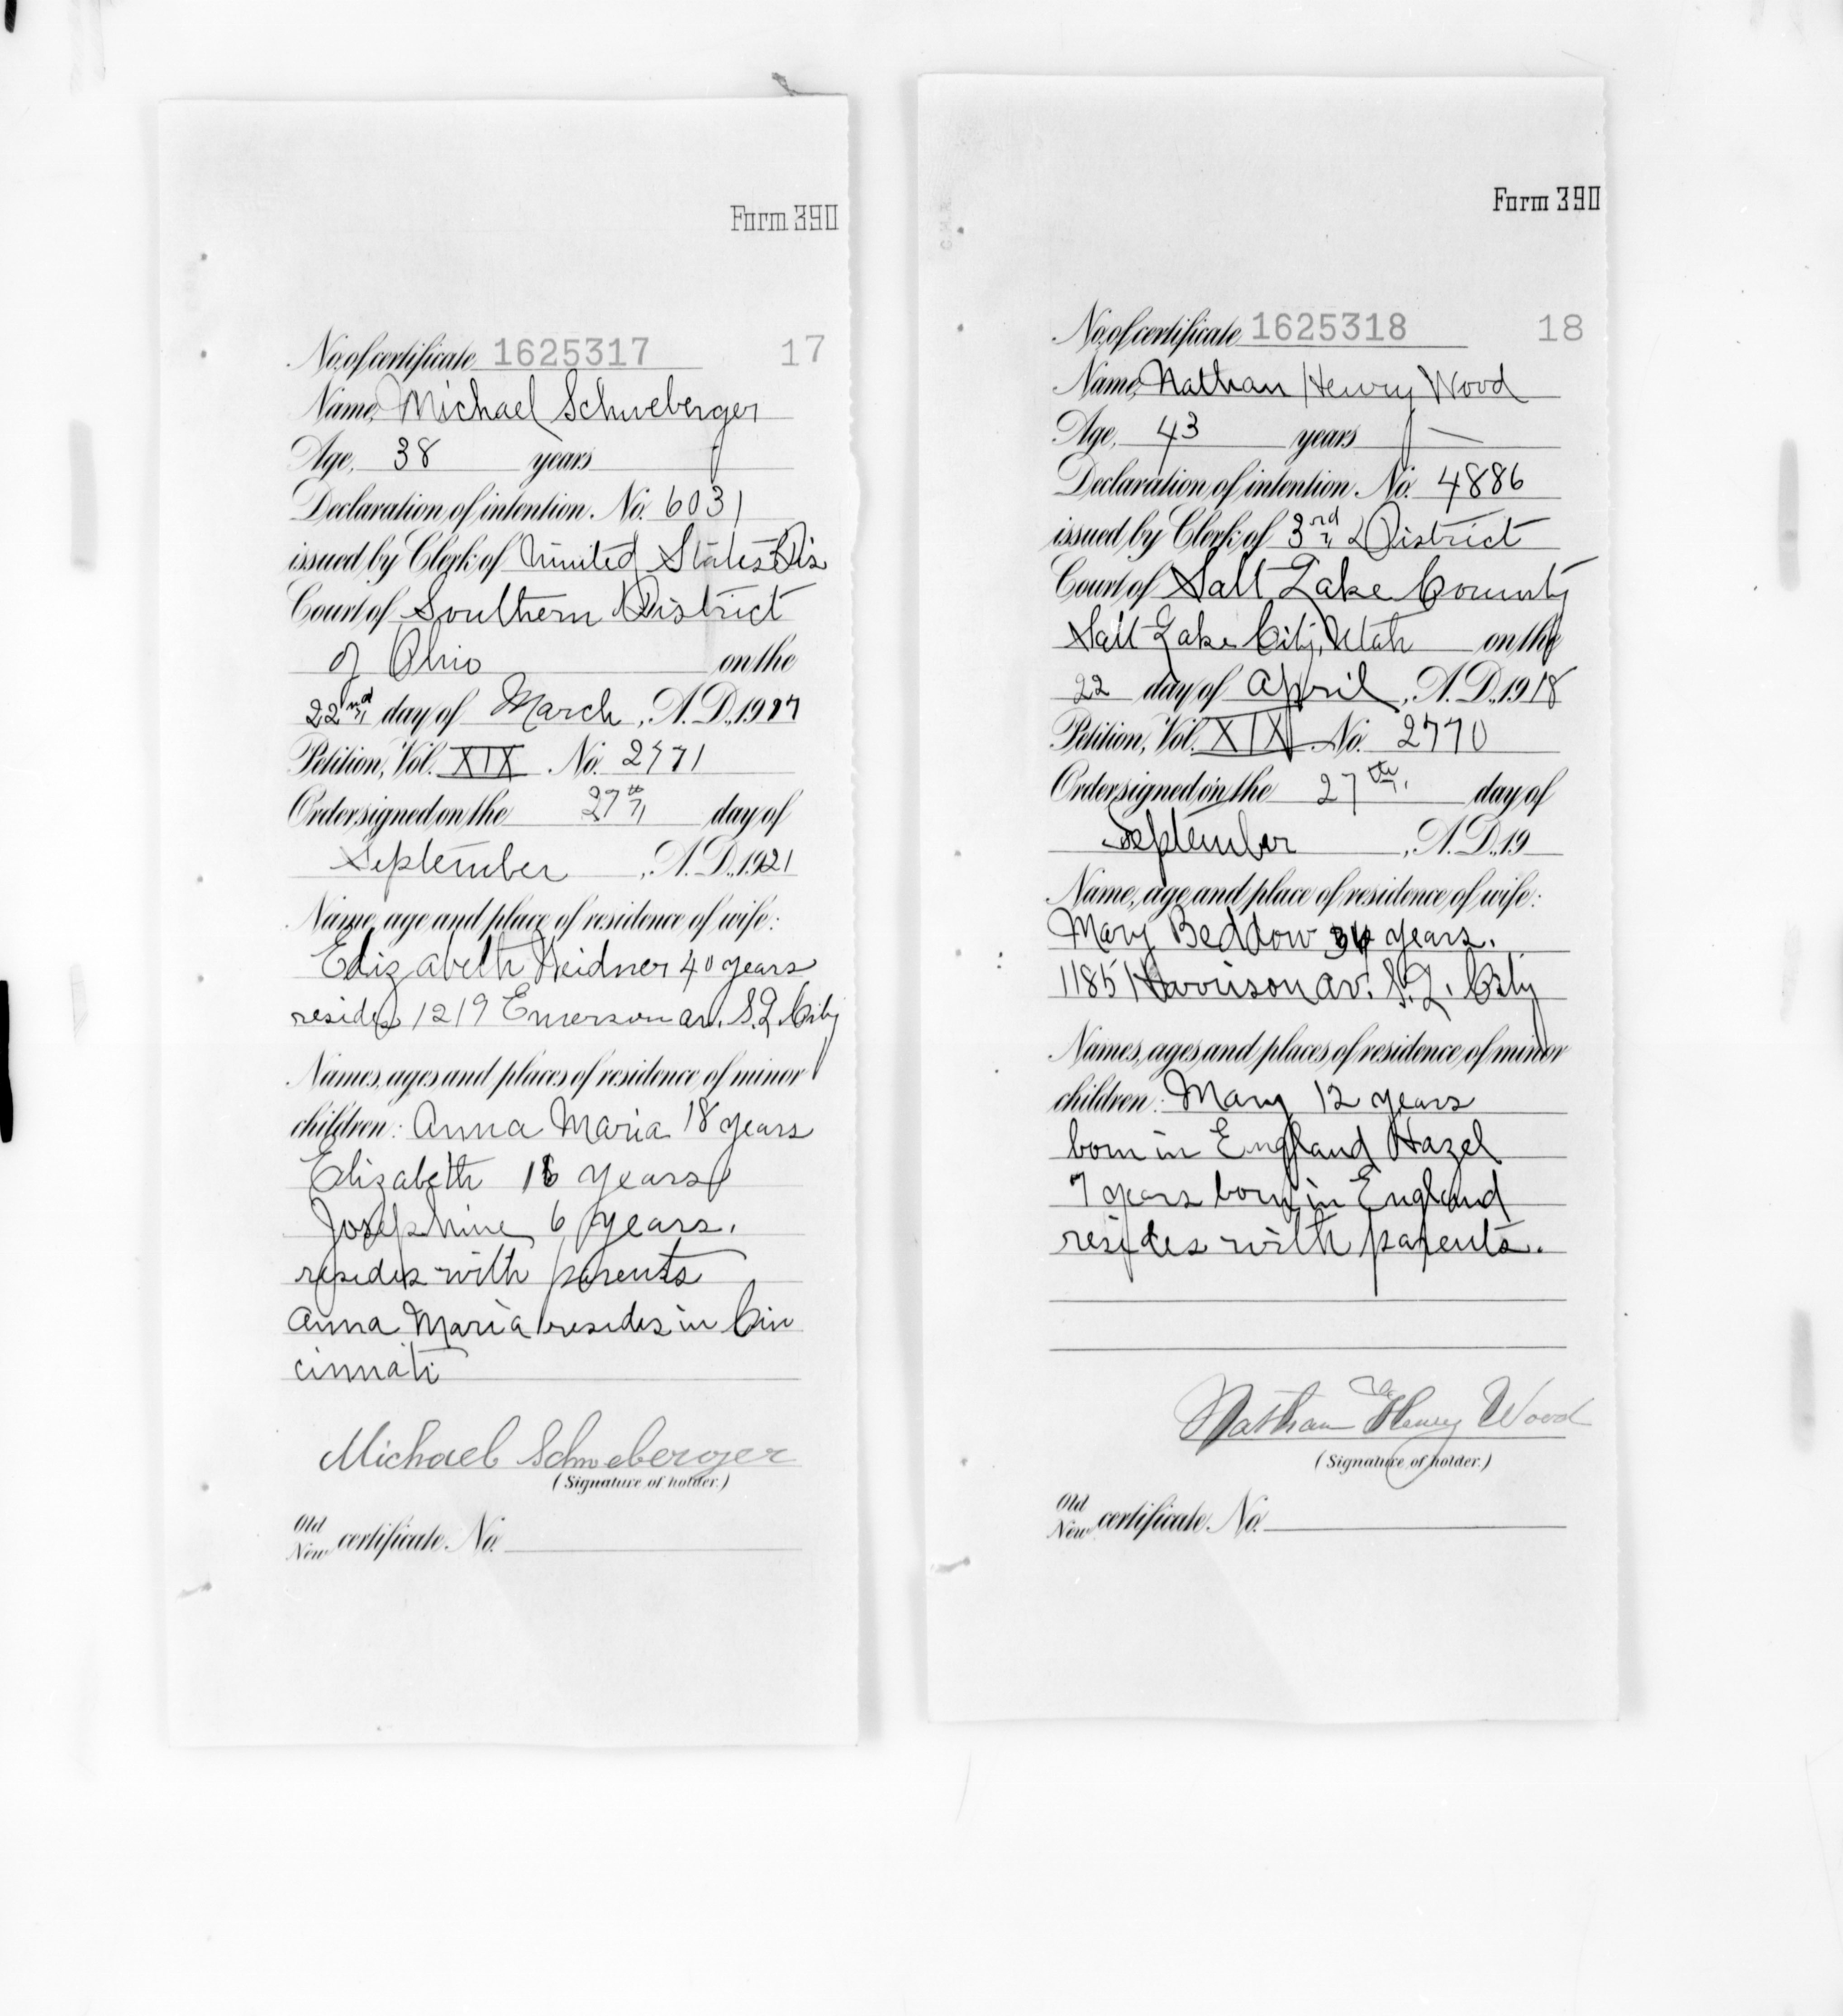 Form 390
No. of certificate 1625317 17
Name, Michael Schweberger
Age, 38 years
Declaration of intention No. 6031
issued by Clerk of United States Dis
Court of Southern District
of Ohio on the
22nd day of March, A.D. 1917
Petition, Vol. XIX No. 2771
Order signed on the 27th day of
September, A.D. 1921
Name, age and place of residence of wife:
Elizabeth Weidner 40 years
resides 1219 Emerson av. S.L. City
Names, ages and places of residence of minor
children: Anna Maria 18 years
Elizabeth 16 years
Josephine 6 years.
resides with parents
Anna Maria resides in Cin
cinnati
Michael Schweberger
(Signature of holder.)
Old
New certificate No.
Form 390
No. of certificate 1625318 18
Name, Nathan Henry Wood
Age, 43 years —
Declaration of intention No. 4886
issued by Clerk of 3rd District
Court of Salt Lake County
Salt Lake City, Utah on the
22 day of April, A.D. 1918
Petition, Vol. XIX No. 2770
Order signed on the 27th day of
September, A.D. 19
Name, age and place of residence of wife:
Mary Beddow 34 years.
1185 Harrison av. S.L. City
Names, ages and places of residence of minor
children: Mary 12 years
born in England Hazel
7 years born in England
resides with parents.
Nathan Henry Wood
(Signature of holder.)
Old
New certificate No.